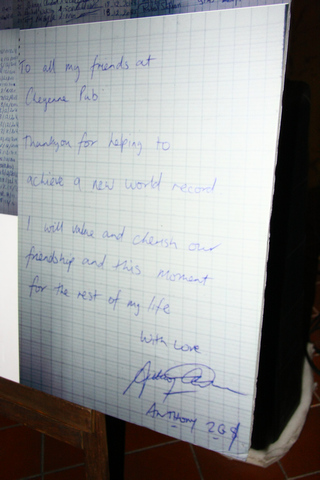 To all my friends at
Cheyenne Pub
Thankyou for helping to
achieve a new world record
I will value and cherish our
friendship and this moment
for the rest of my life
With Love
ANTHONY